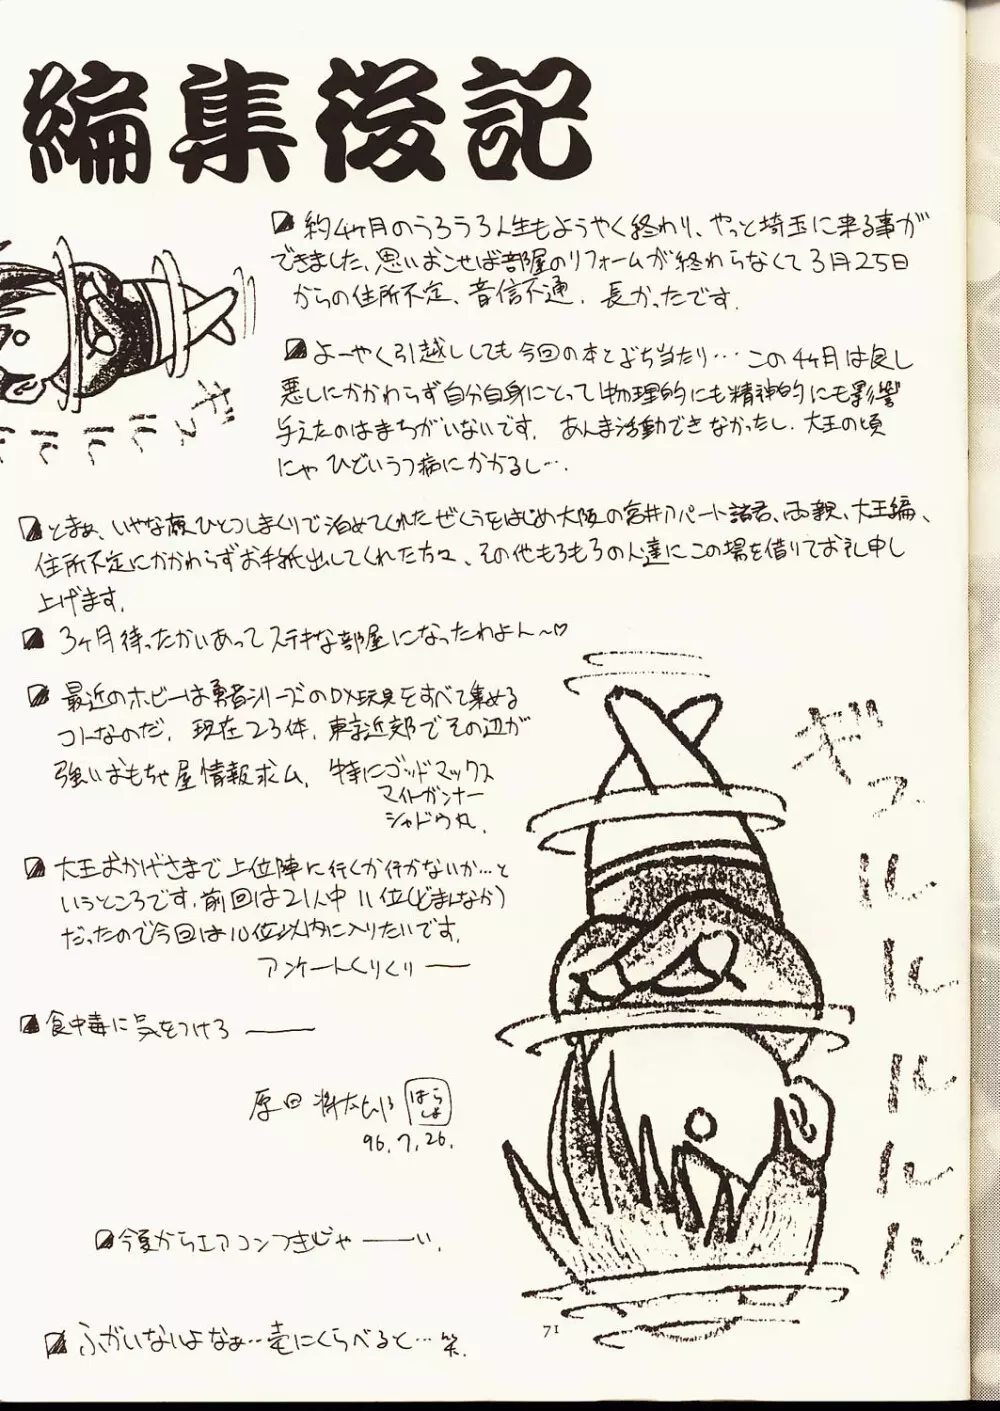 編集後記
約4ヶ月のうろうろ人生もようやく終わり、やっと埼玉に来る事が
できました、思いおこせば部屋のリフォームが終わらなくて3月25日
からの住所不定、音信不通. 長かったです.
よーやく引越ししても今回の本とぶち当たり…この4ヶ月は良し
悪しにかかわらず自分自身にとって物理的にも精神的にも影響
与えたのはまちがいないです. あんま活動できなかったし. 大王の頃
にゃひどいうつ病にかかるし….
とまぁ、いやな顔ひとつしまくりで泊めてくれたぜくうをはじめ大阪の宮井アパート諸君、両親、大王編、
住所不定にかかわらずお手紙出してくれた方々、その他もろもろの人達にこの場を借りてお礼申し
上げます.
3ヶ月待ったかいあってステキな部屋になったわよん〜♡
最近のホビーは勇者シリーズのDX玩具をすべて集める
コトなのだ. 現在23体. 東京近郊でその辺が
強いおもちゃ屋情報求ム. 特にゴッドマックス
マイトガンナー
シャドウ丸.
大王おかげさまで上位陣に行くか行かないか…と
いうところです. 前回は21人中11位(どまんなか)
だったので今回は10位以内に入りたいです.
アンケートくりくりー
食中毒に気をつけろ ―
原田 はらしょ
96.7.26.
今夏からエアコンつきじゃーい.
ふがいないよなぁ…壱にくらべると…笑.
ギュルルルルル
71